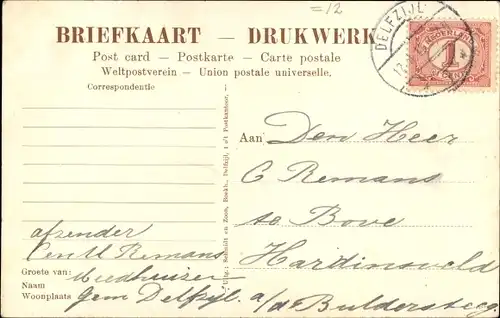 =12
BRIEFKAART — DRUKWERK
Post card — Postkarte — Carte postale
Weltpostverein — Union postale universelle.
Correspondentie
DELFZIJL
NEDERLAND
1
CENT
Aan Den Heer
C Remans
te Bove
Hardinxveld
a/d Buldersteeg
afzender
Remans
Groete van: Meedhuizen
Naam
Woonplaats Gem Delfzijl
Uitg.: Schuitt en Zoon, Boekh., Delfzijl, t o/t Postkantoor.